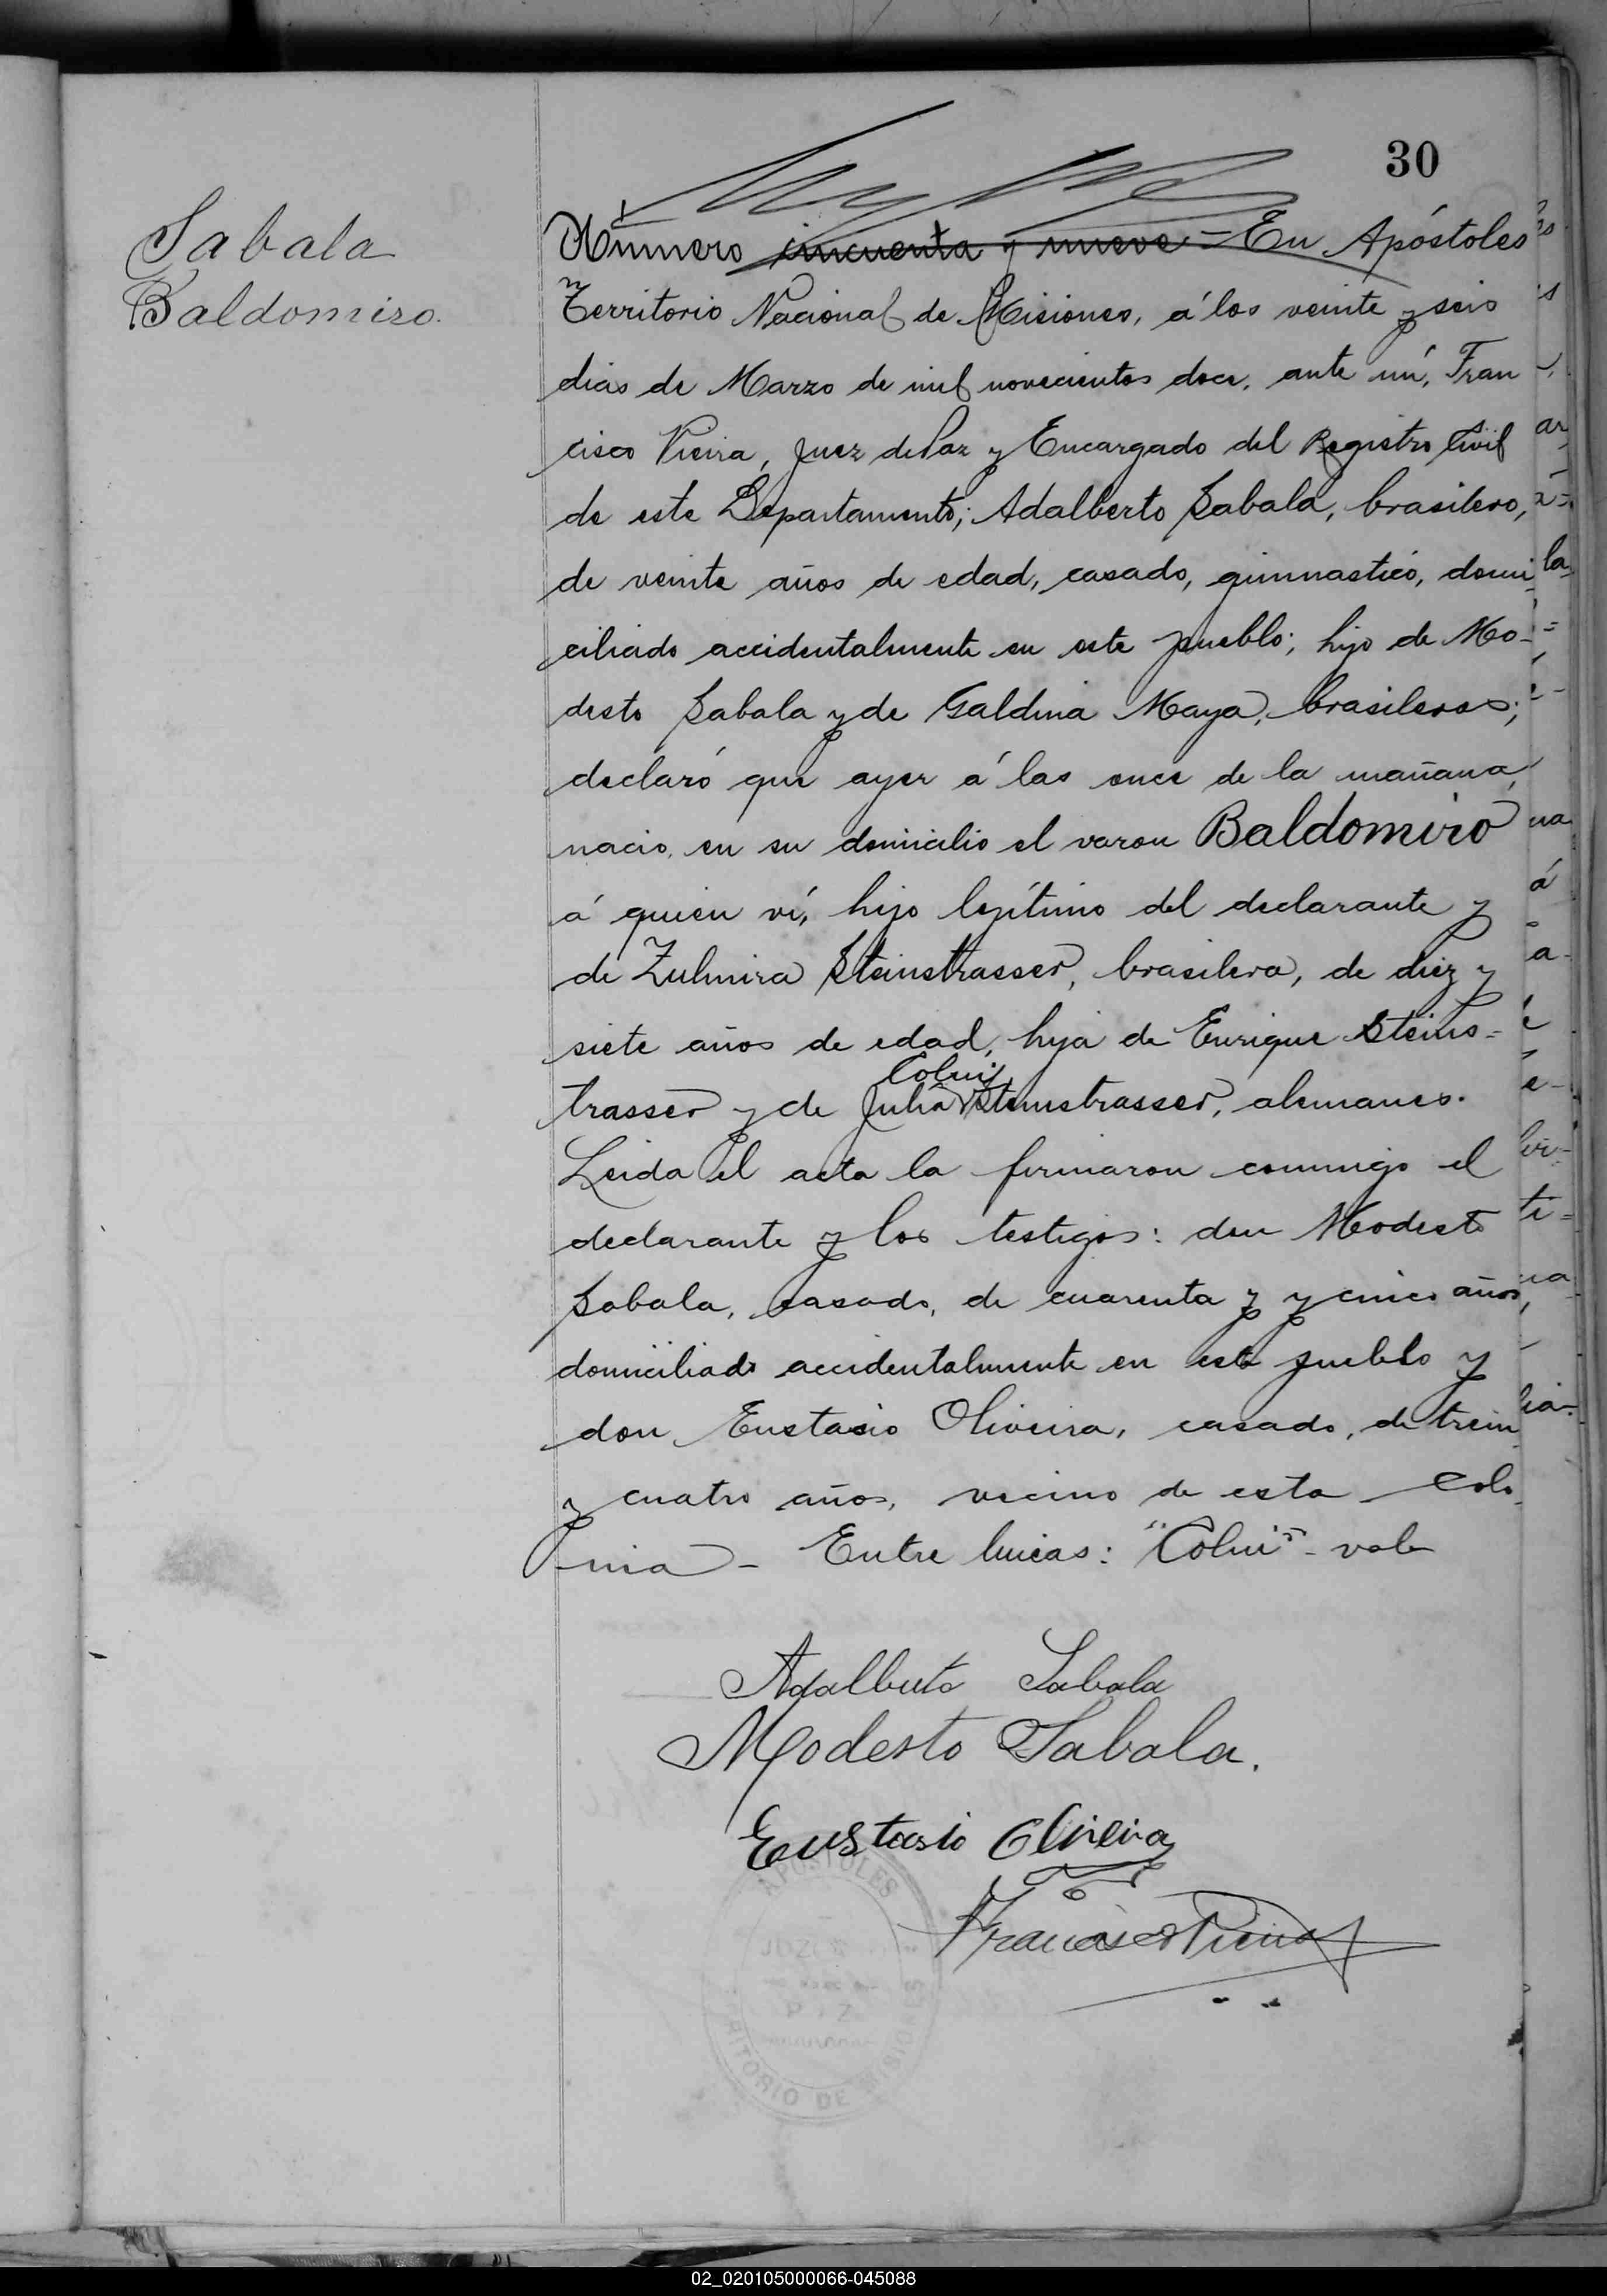 30
Sabala
Baldomiro.
Número cincuenta y nueve = En Apóstoles
Territorio Nacional de Misiones, á los veinte y seis
dias de Marzo de mil novecientos doce, ante mí, Fran
cisco Vieira, Juez de Paz y Encargado del Registro Civil
de este Departamento; Adalberto Sabala, brasilero,
de veinte años de edad, casado, gimnastico, domi
ciliado accidentalmente en este pueblo; hijo de Mo-
desto Sabala y de Galdina Maya, brasileros;
declaró que ayer á las once de la mañana,
nacio, en su domicilio el varon Baldomiro
á quien ví, hijo legítimo del declarante y
de Zulmira Steinstrasser, brasilera, de diez y
siete años de edad, hija de Enrique Steins-
Colni
trasser y de Julia Steinstrasser, alemanes.
Leida el acta la firmaron conmigo el
declarante y los testigos: don Modesto
Sabala, casado, de cuarenta y y cinco años,
domiciliado accidentalmente en este pueblo y
don Eustasio Oliveira, casado, de trein
y cuatro años, vecino de esta Colo
nia - Entre lineas: "Colni" - vale
Adalberto Sabala
Modesto Sabala.
Eustasio Oliveira
Francisco Vieira
APOSTOLES
RITORIO DE MISIONES
02_020105000066-045088